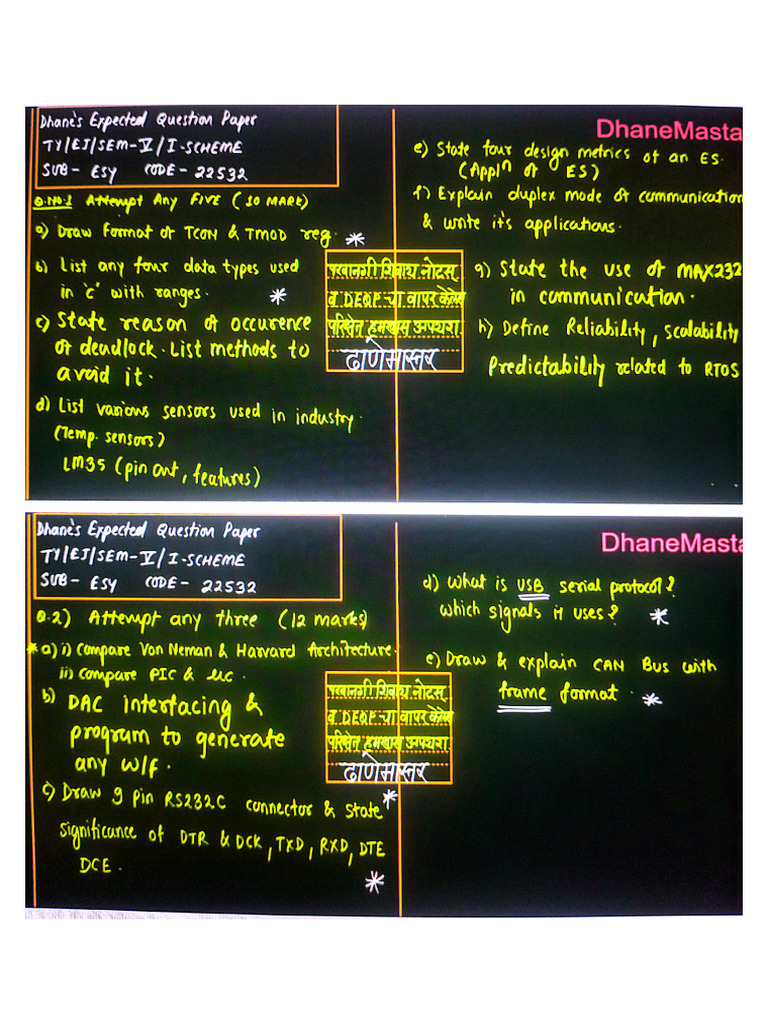 Dhane's Expected Question Paper
TY/EJ/SEM-V/I-SCHEME
SUB- ESY CODE - 22532
Q.NO.1 Attempt Any FIVE (10 MARK)
a) Draw Format of TCON & TMOD reg. *
b) List any four data types used
in 'c' with ranges. *
c) State reason of occurence
of deadlock. List methods to
avoid it.
d) List various sensors used in industry.
(Temp. sensors)
LM35 (pin out, features)
परवानगी शिवाय नोटस्
व DEQP चा वापर केलेस
ढाणेमास्तर
DhaneMasta
e) State four design metrics of an ES.
(Appln of ES)
f) Explain duplex mode of communication
& write it's applications.
g) State the use of MAX232
in communication.
h) Define Reliability, scalability
Predictability related to RTOS
Dhane's Expected Question Paper
TY/EJ/SEM-V/I-SCHEME
SUB- ESY CODE - 22532
Q.2) Attempt any three (12 marks)
* a) i) Compare Von Neman & Harvard Architecture.
ii) Compare PIC & uc.
b) DAC Interfacing &
program to generate
any w/f.
c) Draw 9 pin RS232C connector & state *
significance of DTR & DCK, TXD, RXD, DTE
DCE. *
परवानगी शिवाय नोटस्
व DEQP चा वापर केलेस
ढाणेमास्तर
DhaneMasta
d) What is USB serial protocol?
which signals it uses? *
e) Draw & explain CAN Bus with
frame format. *